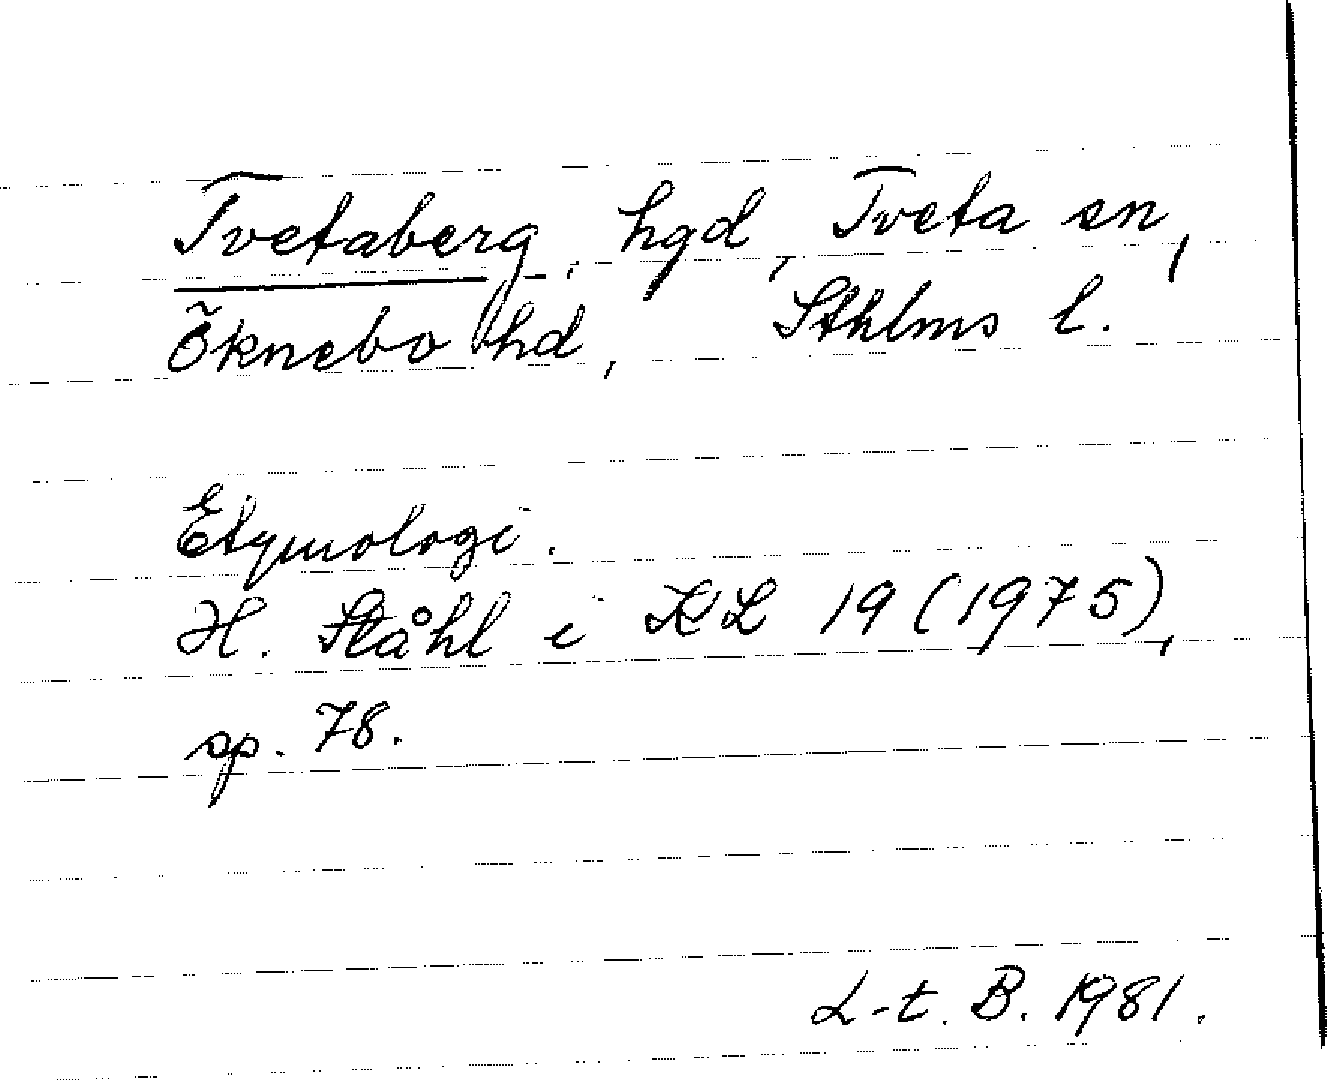 Tvetaberg, hgd, Tveta sn,
Öknebo hd, Sthlms l.
Etymologi.
H. Ståhl i KL 19 (1975),
sp. 78.
L-t. B. 1981.